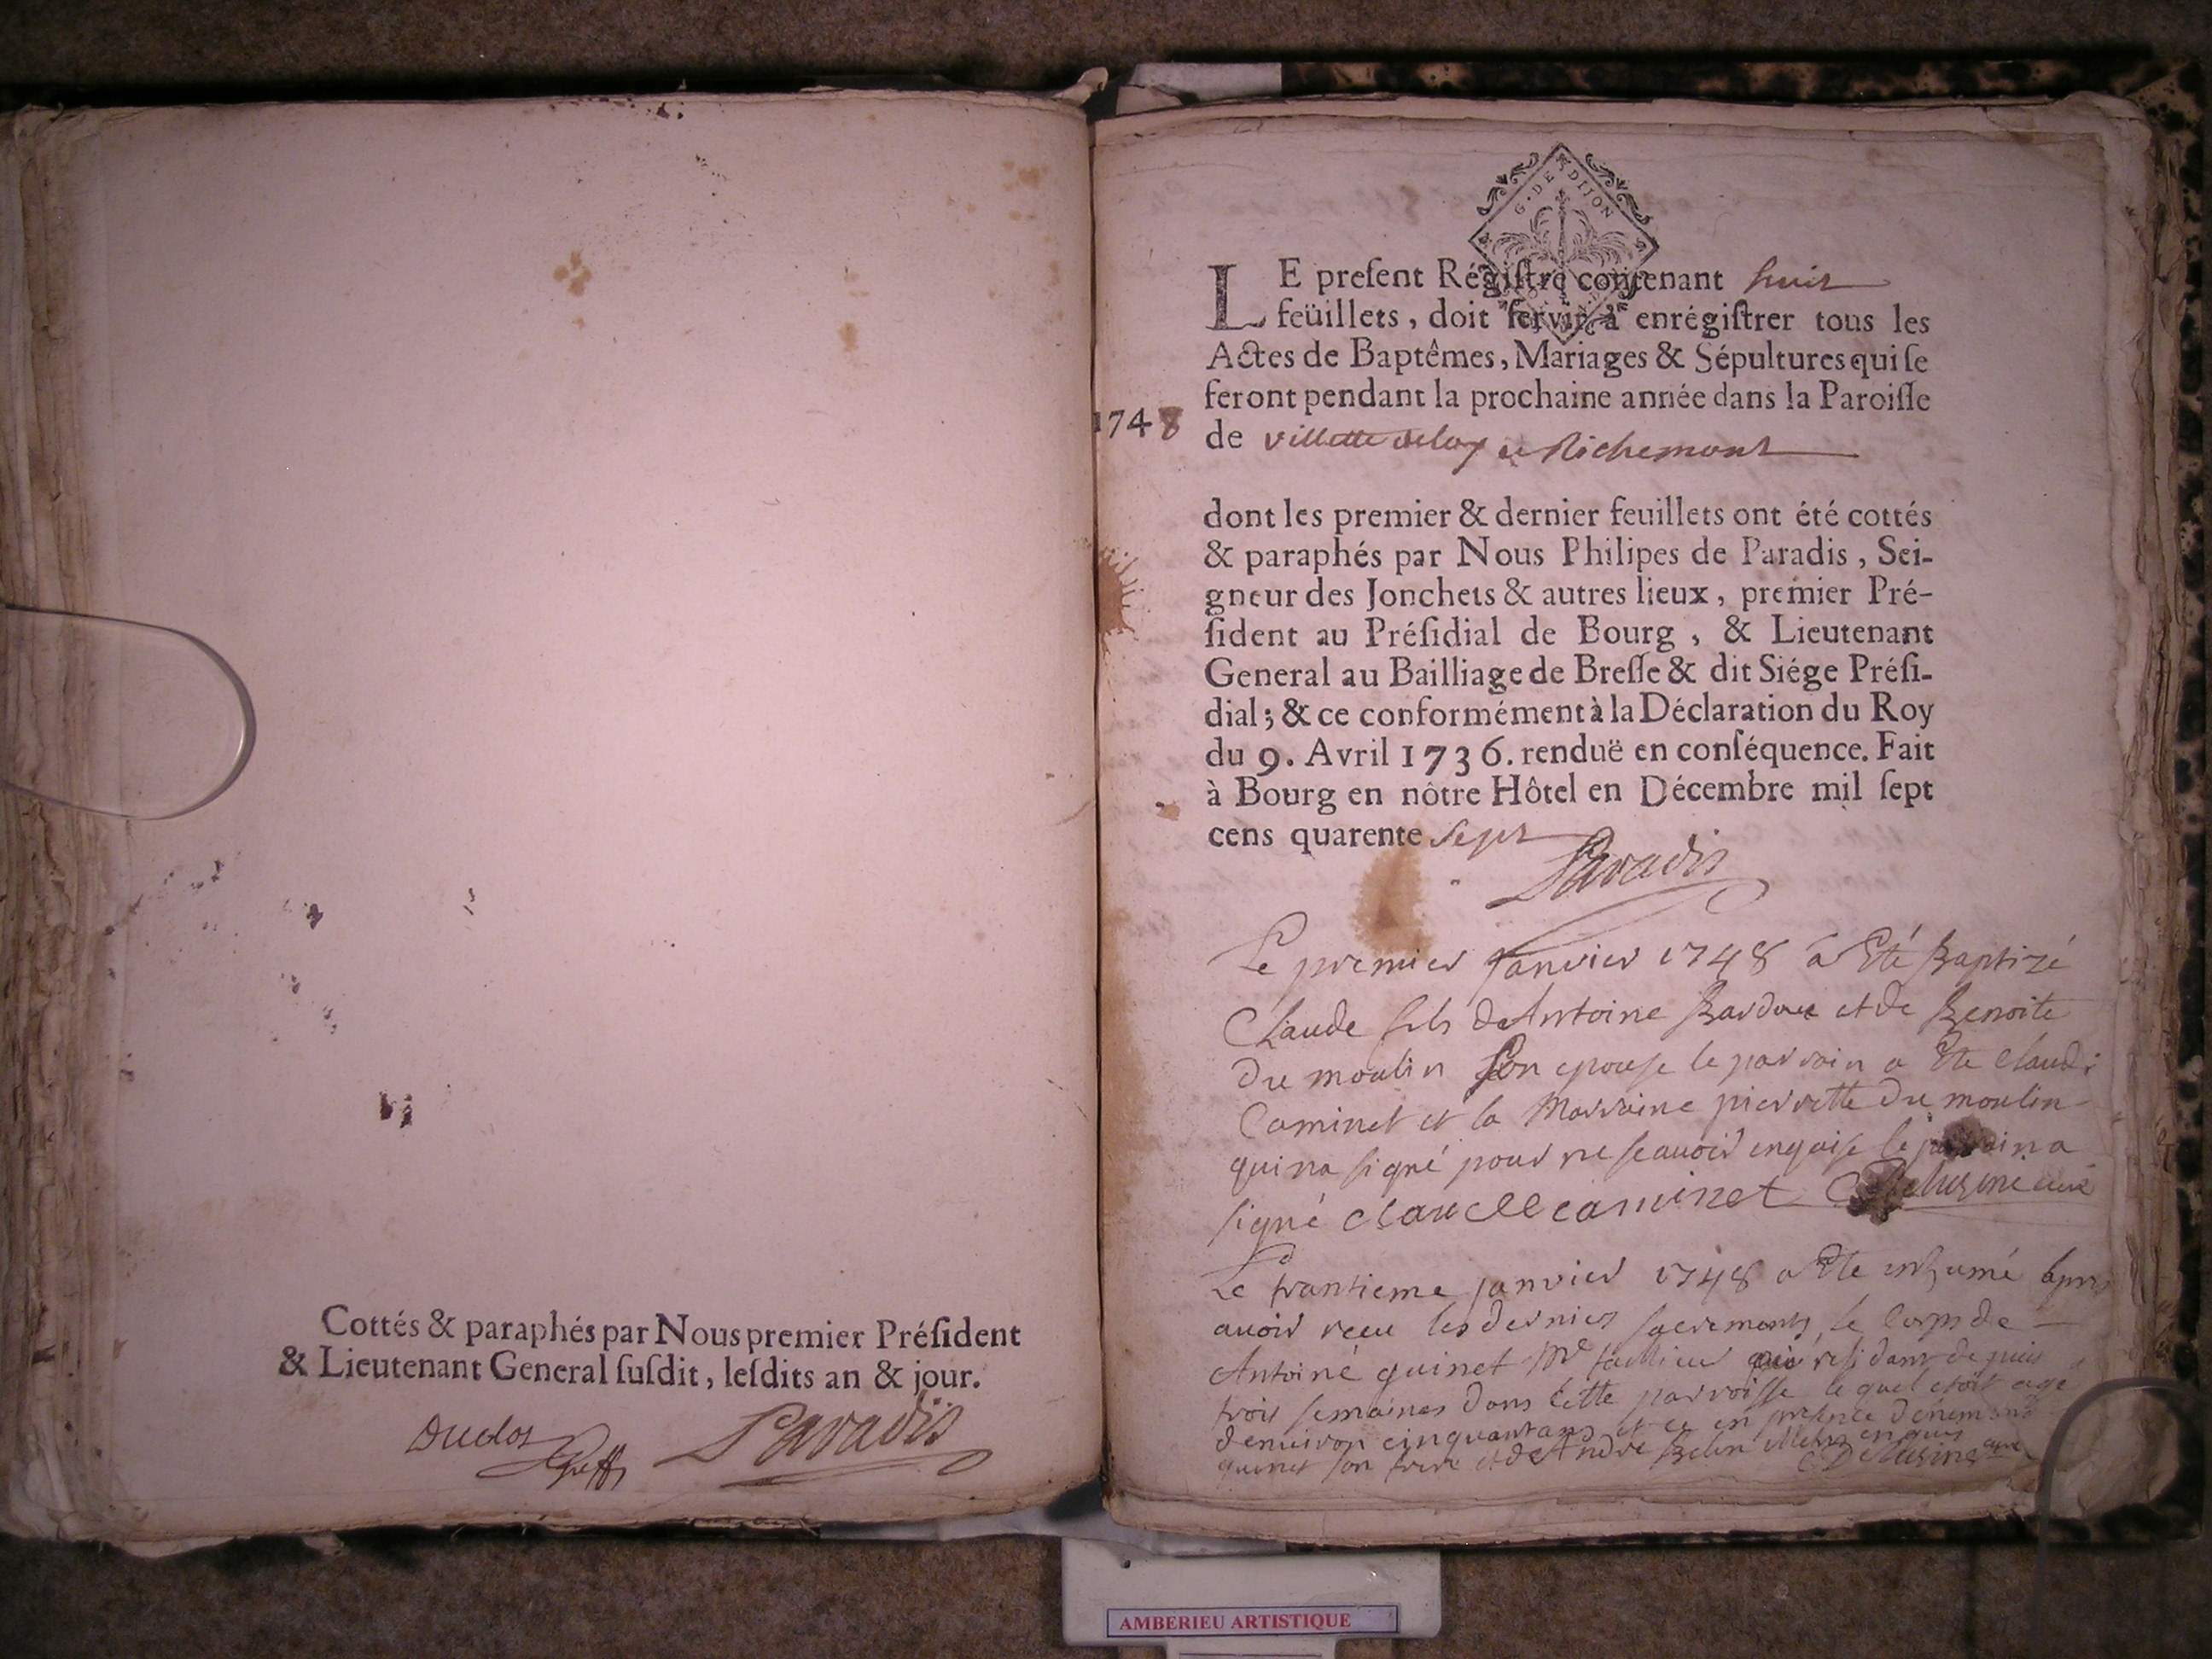 Cottés & paraphés par Nous premier Préſident
& Lieutenant General ſuſdit, leſdits an & jour.
Duclos
Greff
Paradis
G. DE DIJON
LE preſent Régiſtre contenant huit
feüillets, doit ſervir à enrégiſtrer tous les
Actes de Baptêmes, Mariages & Sépultures qui ſe
feront pendant la prochaine année dans la Paroiſſe
1748
de villette deloy et Richemont
dont les premier & dernier feuillets ont été cottés
& paraphés par Nous Philipes de Paradis, Sei-
gneur des Jonchets & autres lieux, premier Pré-
ſident au Préſidial de Bourg, & Lieutenant
General au Bailliage de Breſſe & dit Siége Préſi-
dial; & ce conformément à la Déclaration du Roy
du 9. Avril 1736. renduë en conſéquence. Fait
à Bourg en nôtre Hôtel en Décembre mil ſept
cens quarente sept
Paradis
Le premier janvier 1748 a Eté Baptizé
Claude fils de Antoine Bardoux et de Benoite
Du moulin Son epouse le parrain a Ete Claude
Caminet et la Marraine pierrette Du moulin
qui na signé pour ne scauoir enquise le parrain a
signé claude caminet Delusine curé
Le trantieme janvier 1748 a Ete inhumé apres
auoir receu les derniers sacrements le Corps de
Antoine quinet Me residant depuis
trois semaines dans Cette parroisse le quel etoit agé
denuiron cinquant ans et ce en presence
quinet son frere et de André Belin enquis
Delusine curé
AMBERIEU ARTISTIQUE